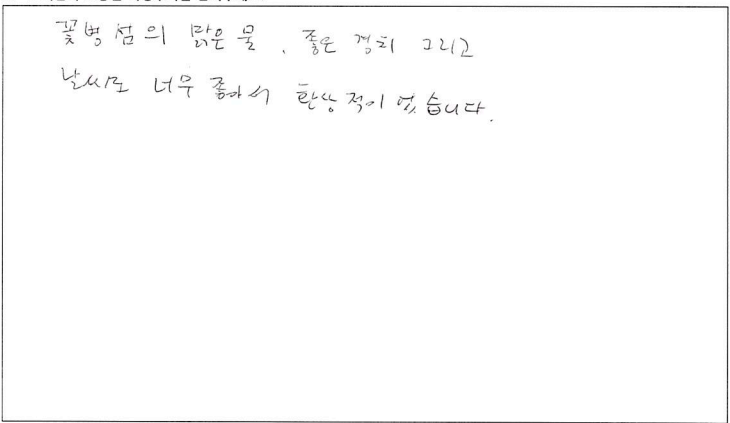 꽃병섬의 맑은 물, 좋은 경치 그리고
날씨도 너무 좋아서 환상적이었습니다.